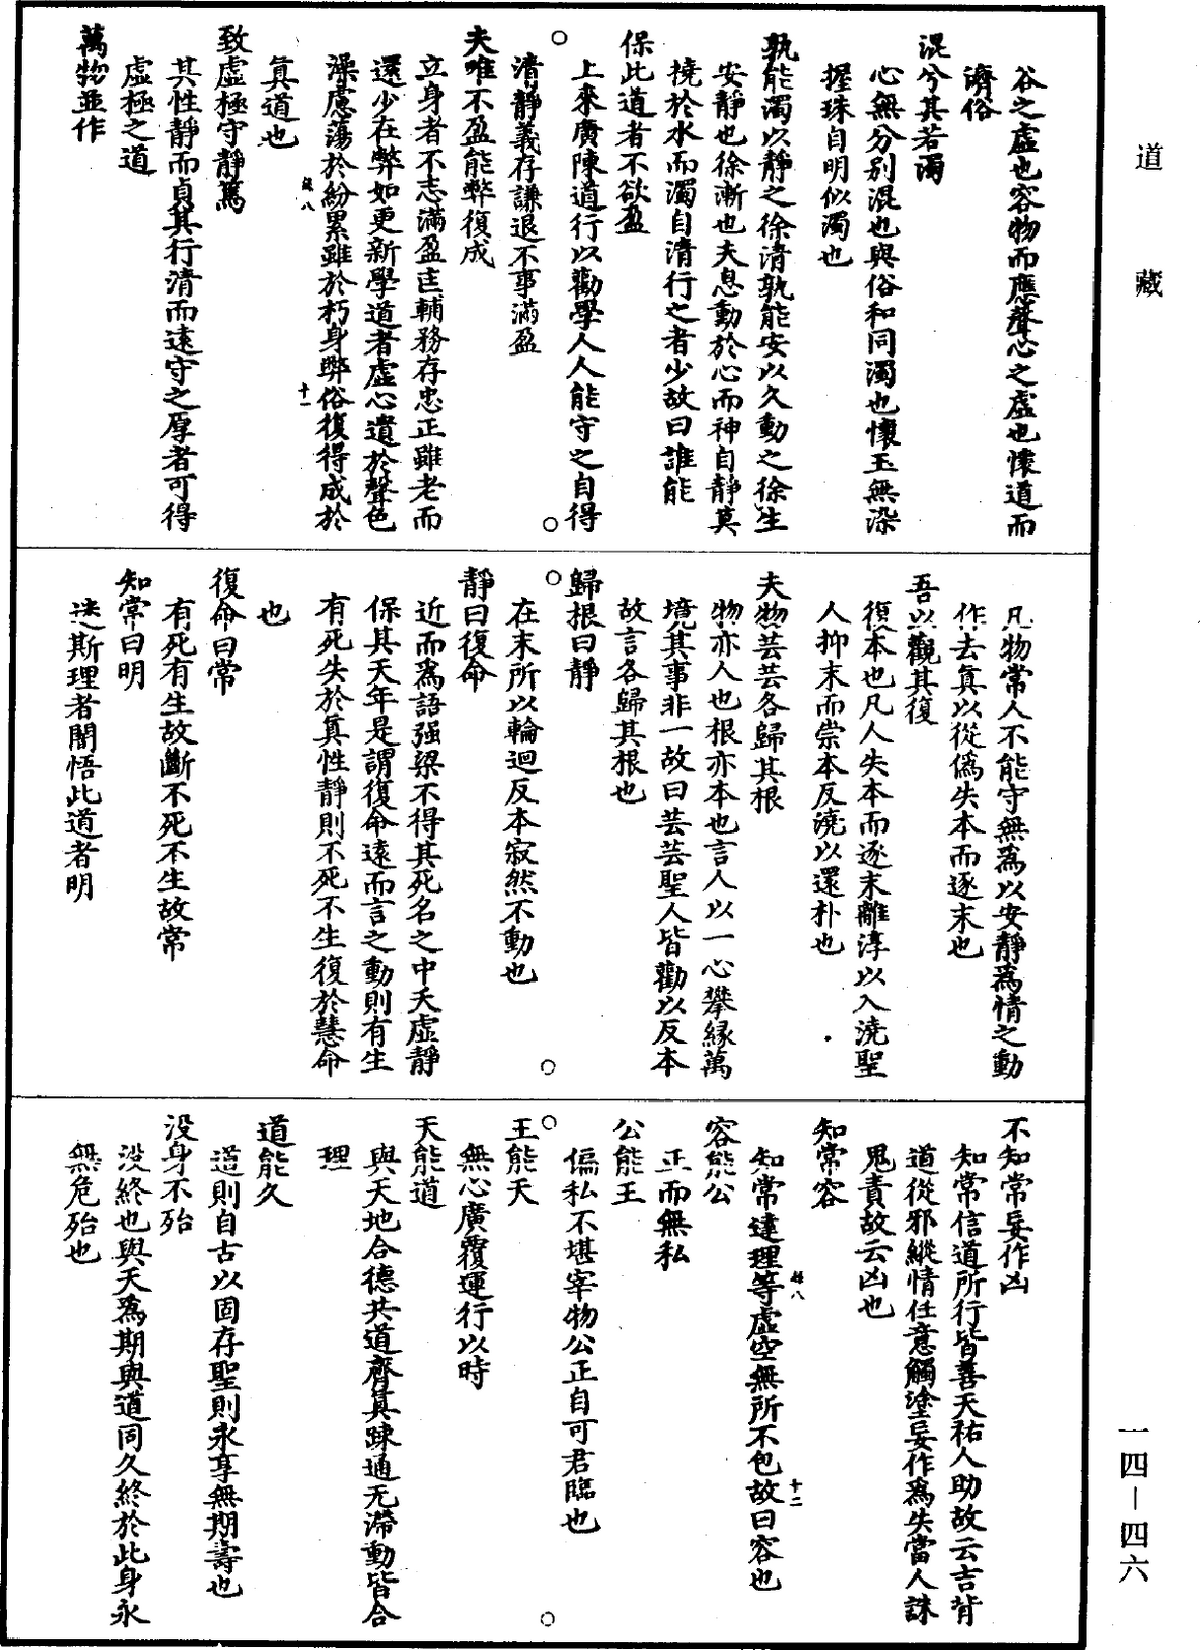 道藏
谷之虛也容物而應聲心之虛也懷道而
濟俗
混兮其若濁
心無分別混也與俗和同濁也懷玉無染
握珠自明似濁也
孰能濁以靜之徐清孰能安以久動之徐生
安靜也徐漸也夫息動於心而神自靜莫
撓於水而濁自清行之者少故曰誰能
保此道者不欲盈
上來廣陳道行以勸學人人能守之自得
清靜義存謙退不事滿盈
夫唯不盈能弊復成
立身者不志滿盈匡輔務存忠正雖老而
還少在弊如更新學道者虛心遺於聲色
澡慮蕩於紛累雖於朽身弊俗復得成於
十一
真道也
致虛極守靜篤
其性靜而貞其行清而遠守之厚者可得
虛極之道
萬物並作
凡物常人不能守無為以安靜為情之動
作去真以從偽失本而逐末也
吾以觀其復
復本也凡人失本而逐末離淳以入澆聖
人抑末而崇本反澆以還朴也
夫物芸芸各歸其根
物亦人也根亦本也言人以一心攀緣萬
境其事非一故曰芸芸聖人皆勸以反本
故言各歸其根也
歸根曰靜
在末所以輪迴反本寂然不動也
靜曰復命
近而為語强梁不得其死名之中夭虛靜
保其天年是謂復命遠而言之動則有生
有死失於真性靜則不死不生復於慧命
也
復命曰常
有死有生故斷不死不生故常
知常曰明
迷斯理者闇悟此道者明
不知常妄作凶
知常信道所行皆善天祐人助故云吉背
道從邪縱情任意觸塗妄作為失當人誅
鬼責故云凶也
知常容
知常達理等虛空無所不包故曰容也
十二
容能公
正而無私
公能王
偏私不堪宰物公正自可君臨也
王能天
無心廣覆運行以時
天能道
與天地合德共道齊真踈通无滯動皆合
理
道能久
道則自古以固存聖則永享無期壽也
没身不殆
没終也與天為期與道同久終於此身永
無危殆也
一四—四六